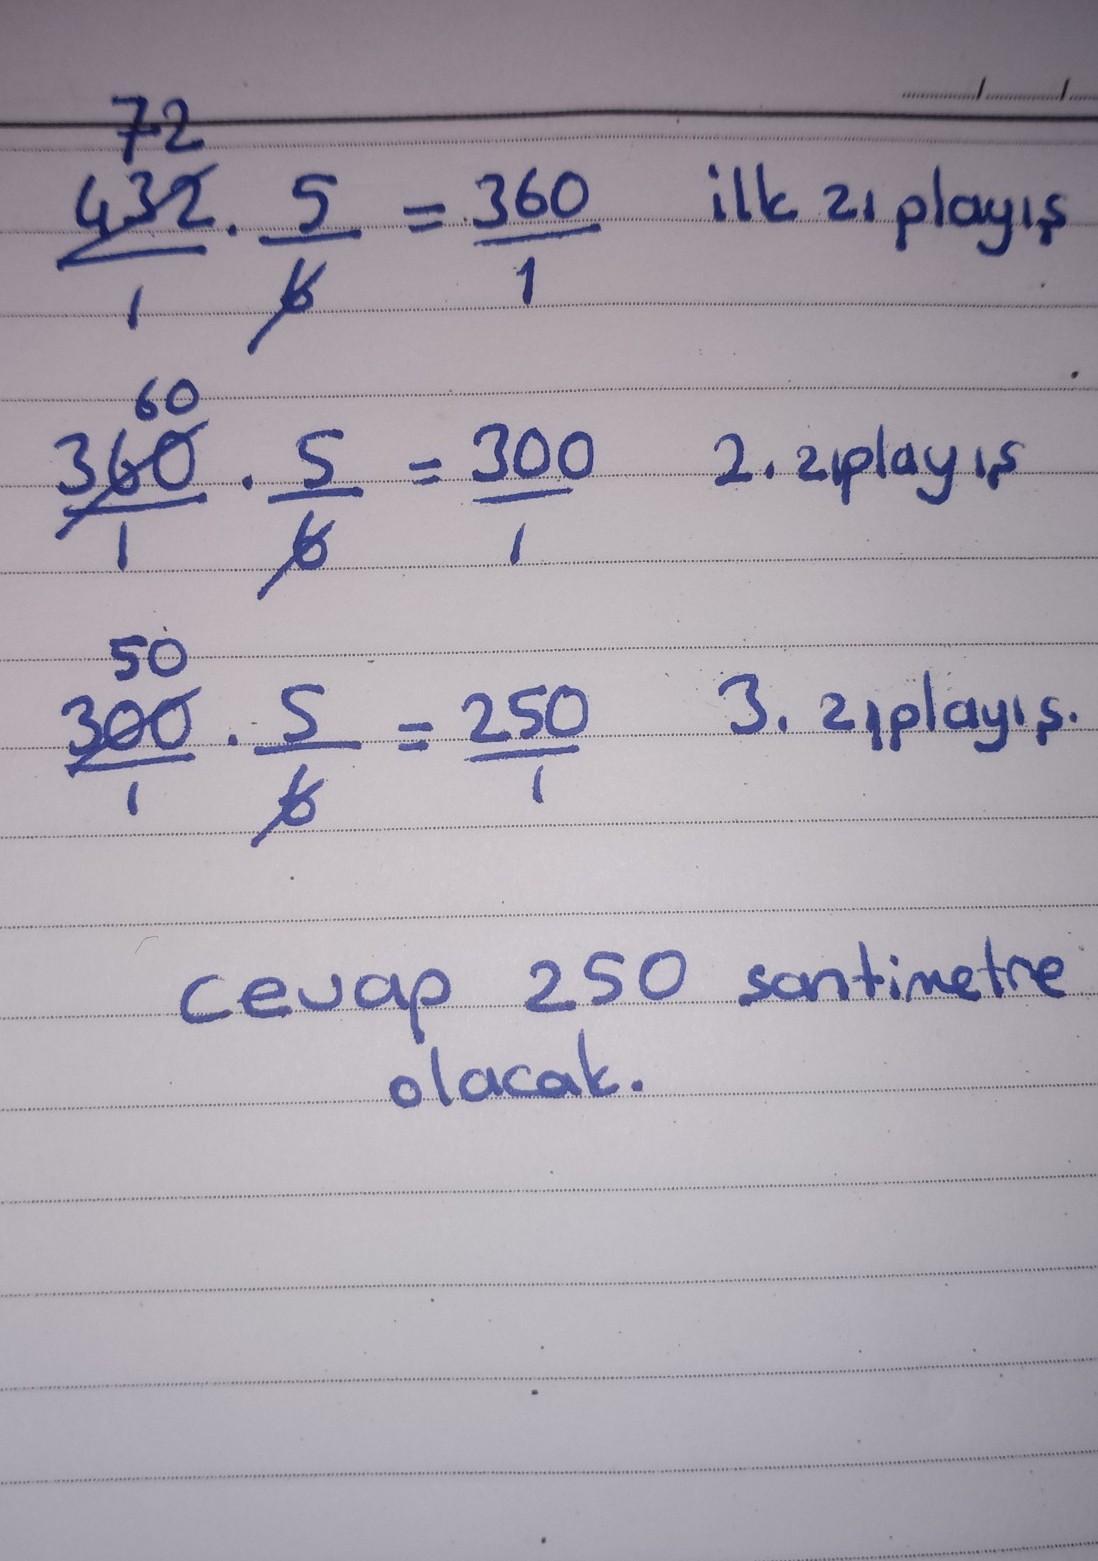 72
432/1 . 5/6 = 360/1 ilk zıplayış
60
360/1 . 5/6 = 300/1 2. zıplayış
50
300/1 . 5/6 = 250/1 3. zıplayış.
cevap 250 santimetre
olacak.